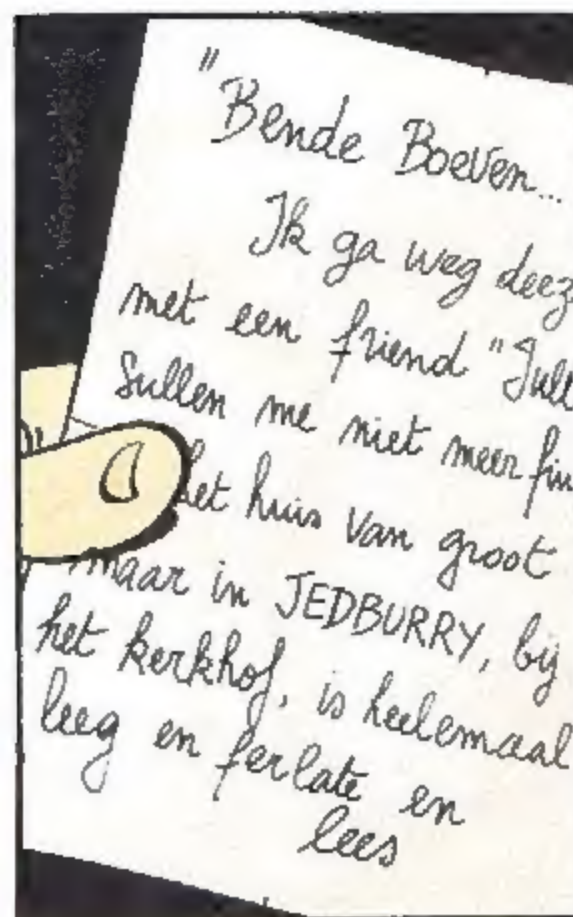 "Bende Boeven...
Ik ga weg deez
met een friend "Jull
Sullen me niet meer fin
het huis van groot
maar in JEDBURRY, bij
het kerkhof, is heelemaal
leeg en ferlate en
lees